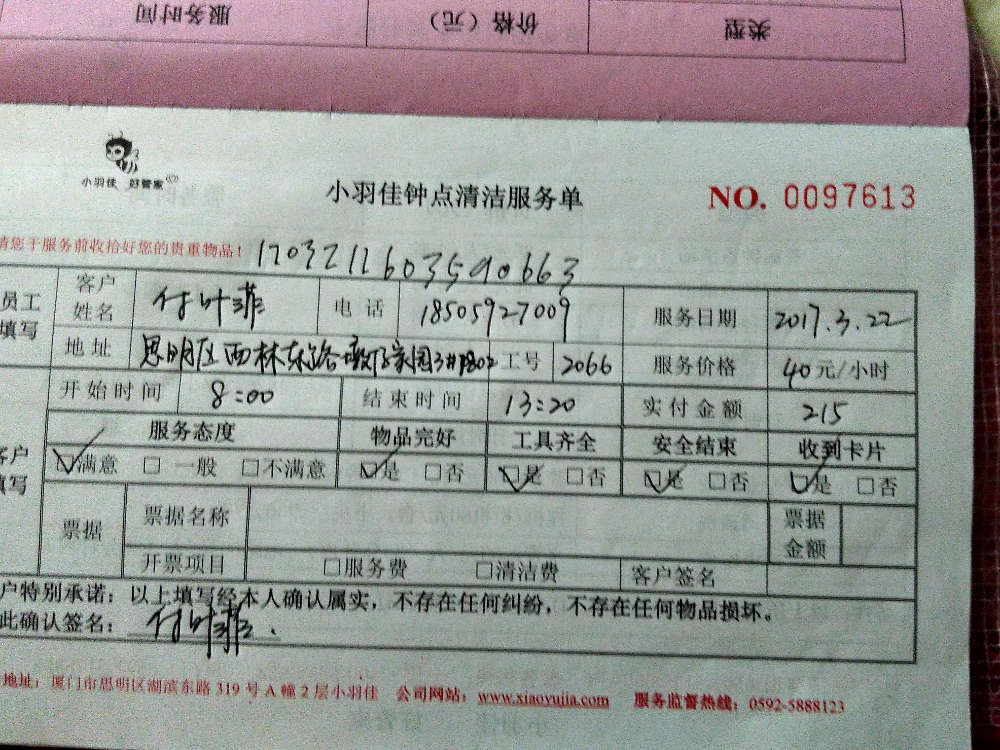 服务时间 价格（元） 类型
小羽佳 好管家
小羽佳钟点清洁服务单 NO. 0097613
请您于服务前收拾好您的贵重物品！ 1703211603590663
员工填写 客户姓名 付叶菲 电话 18505927009 服务日期 2017.3.22
地址 思明区西林东路 家园 工号 2066 服务价格 40元/小时
开始时间 8:00 结束时间 13:20 实付金额 215
客户填写 服务态度 物品完好 工具齐全 安全结束 收到卡片
☑满意 □一般 □不满意 ☑是 □否 ☑是 □否 ☑是 □否 ☑是 □否
票据 票据名称 票据金额
开票项目 □服务费 □清洁费 客户签名
户特别承诺：以上填写经本人确认属实，不存在任何纠纷，不存在任何物品损坏。
此确认签名： 付叶菲.
地址：厦门市思明区湖滨东路 319 号 A 幢 2 层小羽佳 公司网站：www.xiaoyujia.com 服务监督热线：0592-5888123